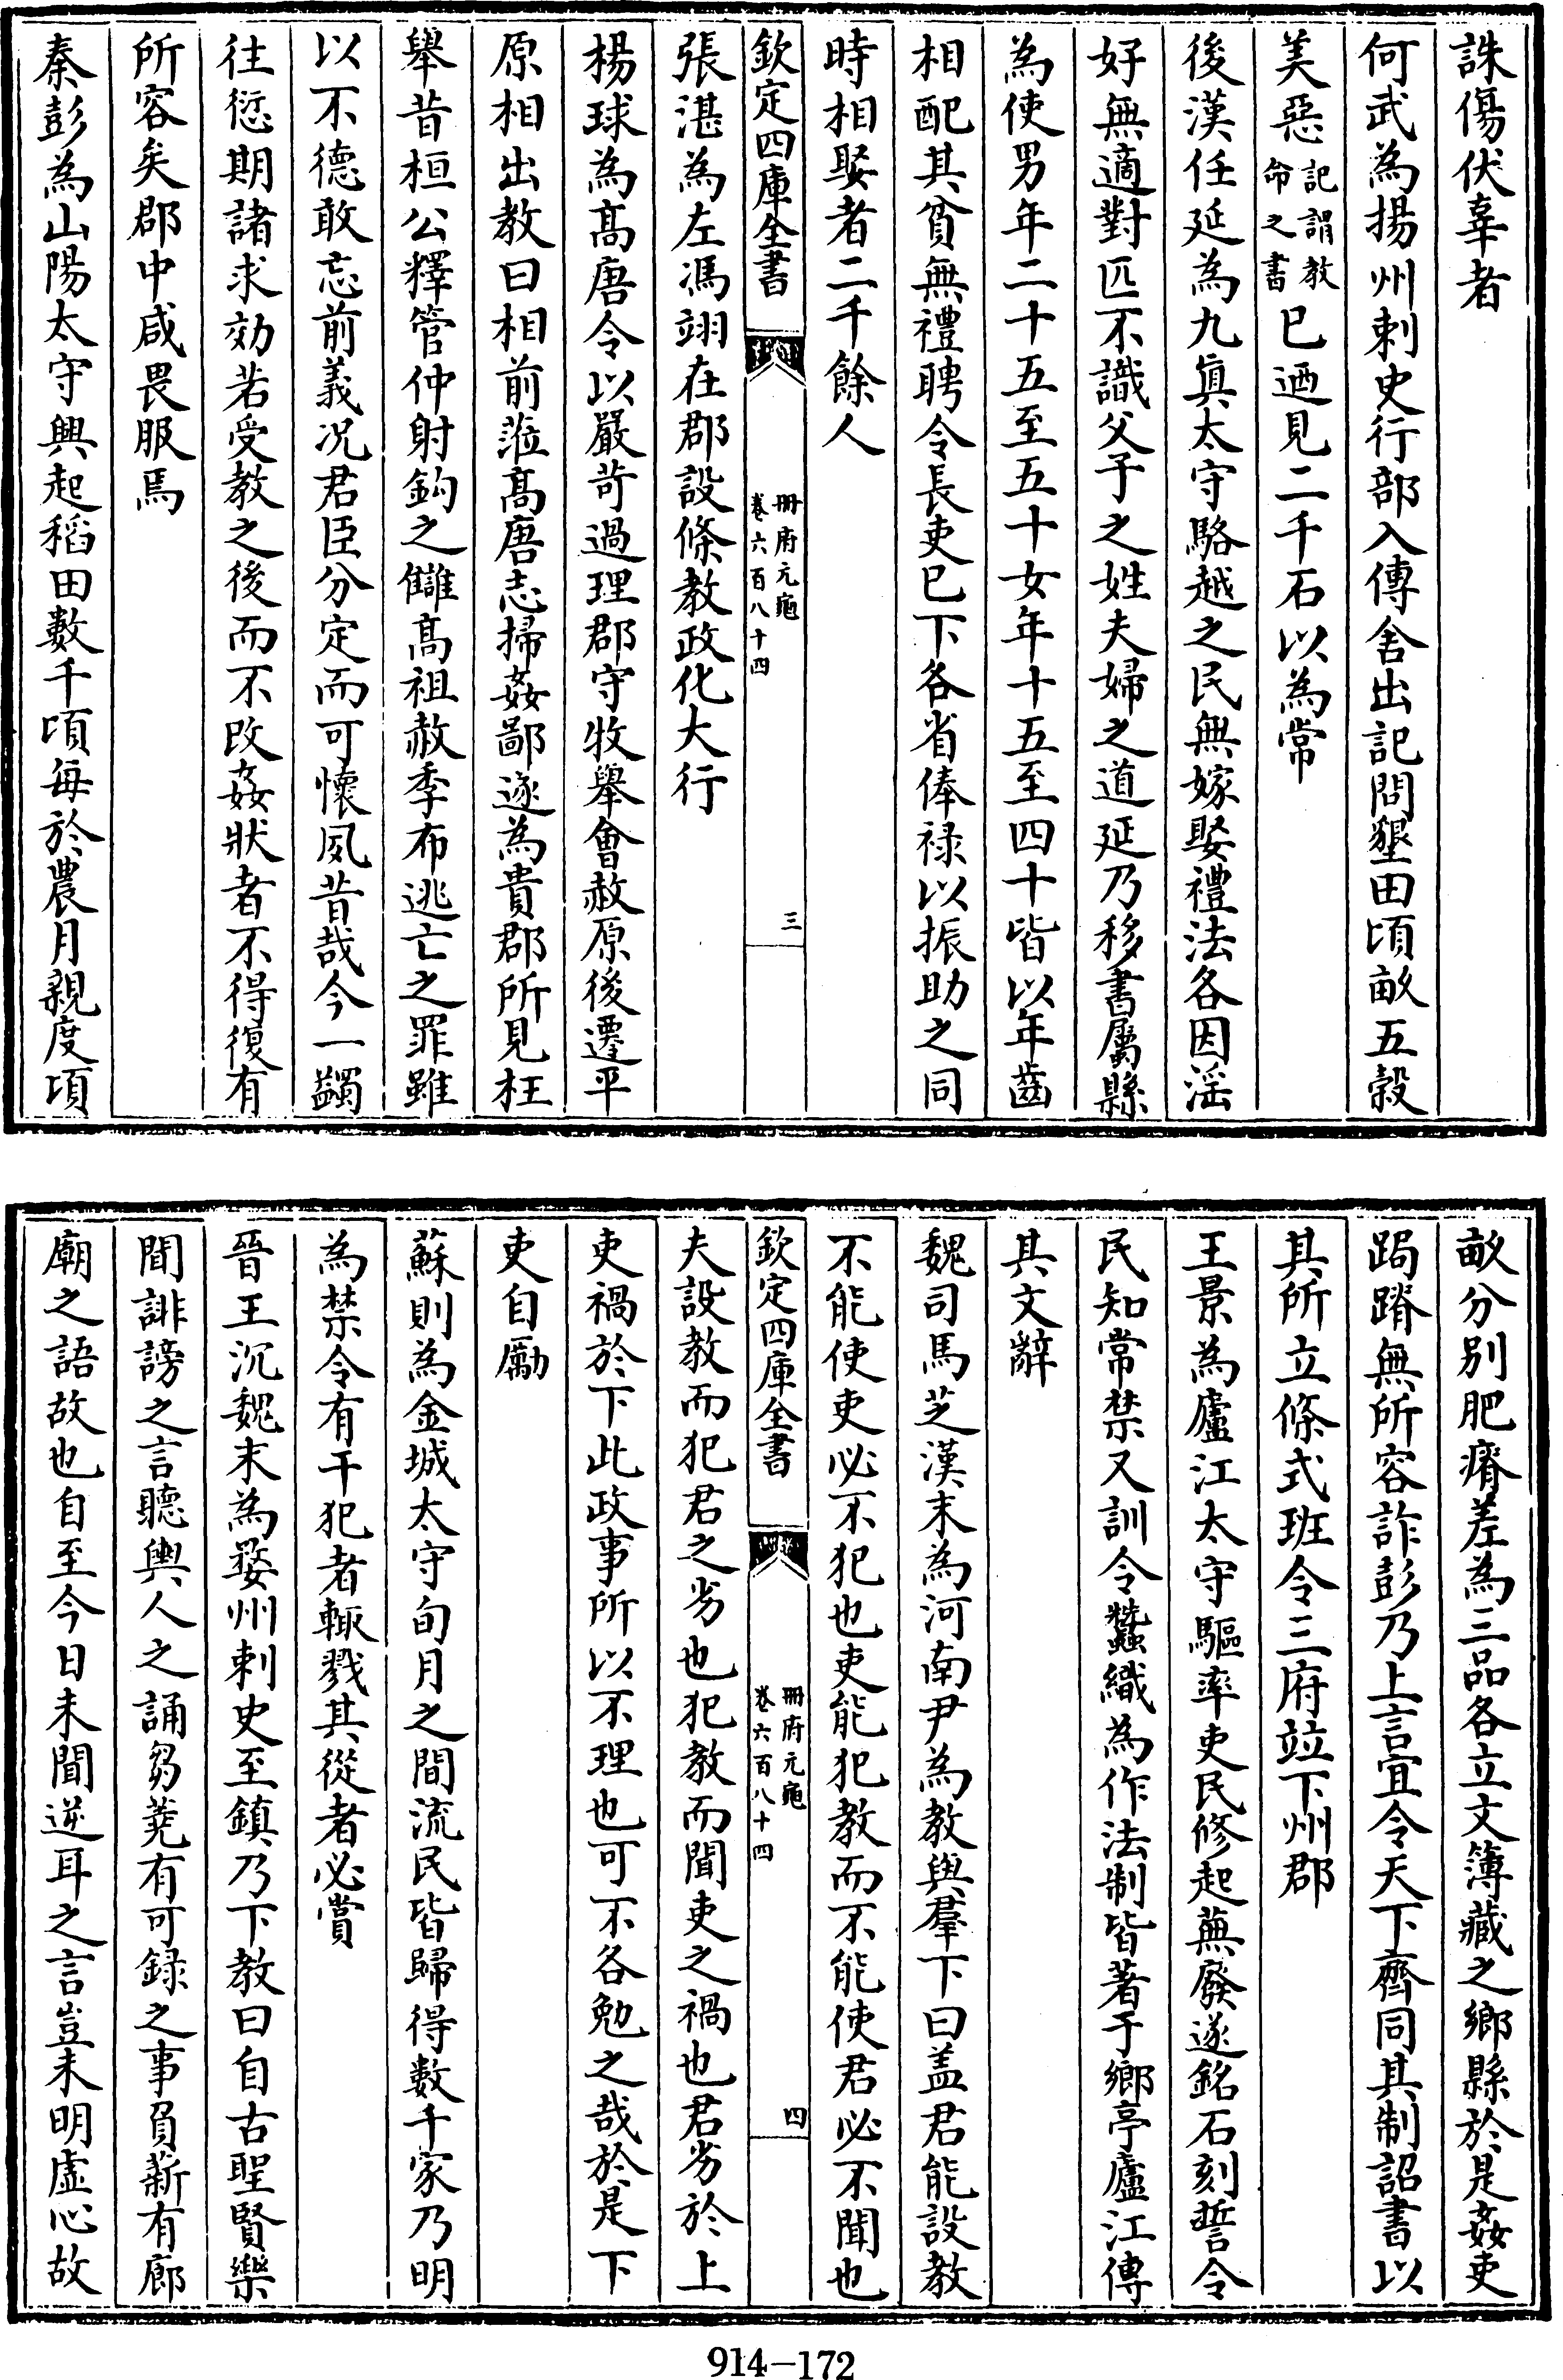 誅傷伏辜者
何武為揚州刺史行部入傳舍出記問墾田頃畝五穀
美惡記謂教命之書已廼見二千石以為常
後漢任延為九真太守駱越之民無嫁娶禮法各因滛
好無適對匹不識父子之姓夫婦之道延乃移書屬縣
為使男年二十五至五十女年十五至四十皆以年齒
相配其貧無禮聘令長吏已下各省俸禄以振助之同
時相娶者二千餘人
欽定四庫全書
冊府元龜
卷六百八十四
三
張湛為左馮翊在郡設條教政化大行
楊球為髙唐令以嚴苛過理郡守牧舉會赦原後遷平
原相出教曰相前蒞髙唐志掃姦鄙遂為貴郡所見枉
舉昔桓公釋管仲射鈎之讎髙祖赦季布逃亡之罪雖
以不德敢忘前義况君臣分定而可懷夙昔哉今一蠲
往愆期諸求効若受教之後而不改姦狀者不得復有
所容矣郡中咸畏服焉
秦彭為山陽太守興起稻田數千頃每於農月親度頃
畝分别肥瘠差為三品各立文簿藏之鄉縣於是姦吏
跼蹐無所容詐彭乃上言宜令天下齊同其制詔書以
其所立條式班令三府竝下州郡
王景為廬江太守驅率吏民修起蕪廢遂銘石刻誓令
民知常禁又訓令蠶織為作法制皆著于鄉亭廬江傳
其文辭
魏司馬芝漢末為河南尹為教與羣下曰盖君能設教
不能使吏必不犯也吏能犯教而不能使君必不聞也
欽定四庫全書
冊府元龜
卷六百八十四
四
夫設教而犯君之劣也犯教而聞吏之禍也君劣於上
吏禍於下此政事所以不理也可不各勉之哉於是下
吏自勵
蘇則為金城太守旬月之間流民皆歸得數千家乃明
為禁令有干犯者輙戮其從者必賞
晉王沉魏末為婺州刺史至鎮乃下教曰自古聖賢樂
聞誹謗之言聽輿人之誦芻蕘有可録之事負薪有廊
廟之語故也自至今日未聞逆耳之言豈未明虛心故
914—172